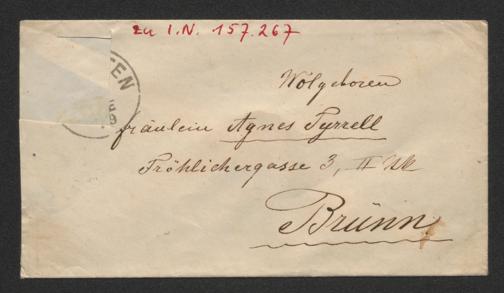 zu I.N. 157.267
Wolgeboren
fräulein Agnes Tyrrell
Fröhlichergasse 3, II
Brünn